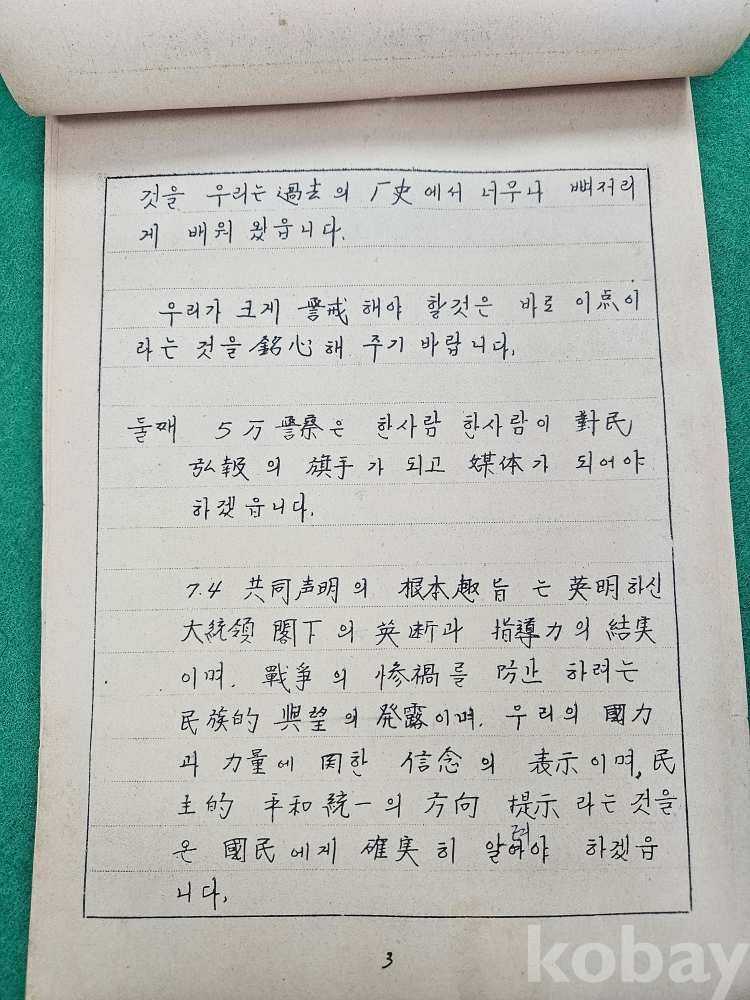 것을 우리는 過去의 厂史에서 너무나 뼈저리
게 배워 왔읍니다.
우리가 크게 警戒해야 할것은 바로 이点이
라는 것을 銘心해 주기 바랍니다.
둘째 5万 警察은 한사람 한사람이 對民
弘報의 旗手가 되고 媒体가 되어야
하겠읍니다.
7.4 共同声明의 根本趣旨는 英明하신
大統領 閣下의 英断과 指導力의 結実
이며. 戰争의 惨禍를 防止 하려는
民族的 與望의 発露이며. 우리의 國力
과 力量에 関한 信念의 表示이며, 民
主的 平和統一의 方向 提示라는 것을
온 國民에게 確実히 알려야 하겠읍
니다.
3
kobay